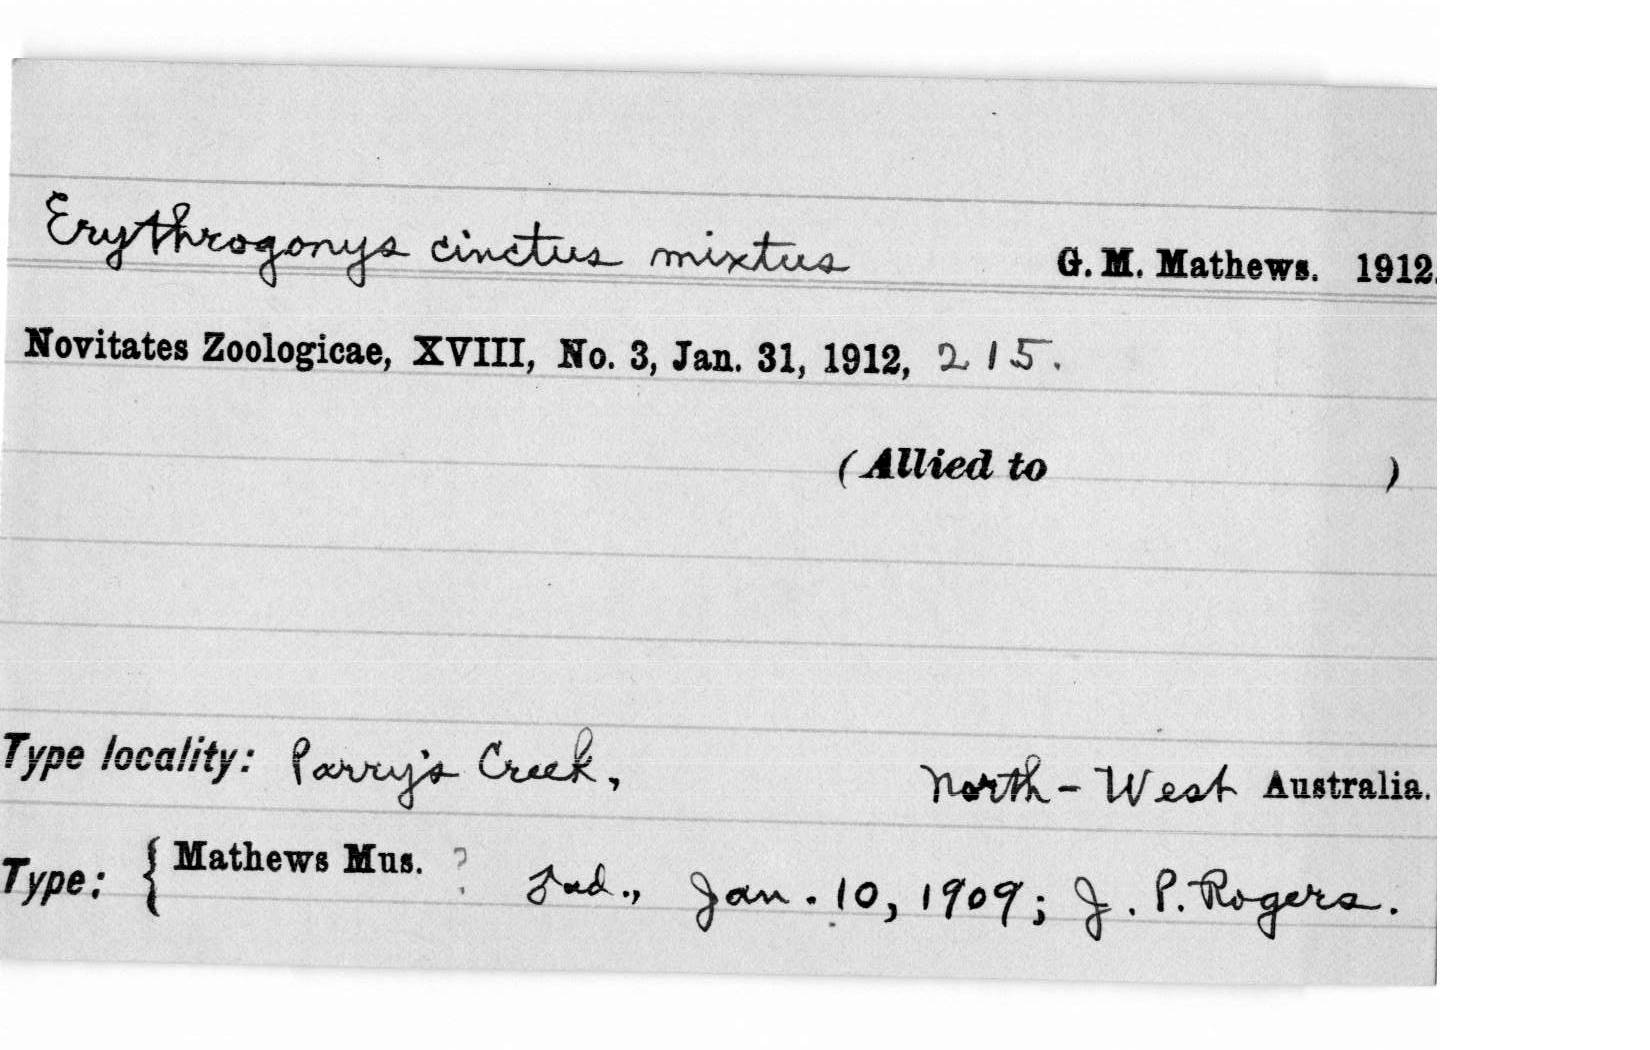 Erythrogonys cinctus mixtus G. M. Mathews. 1912.
Novitates Zoologicae, XVIII, No. 3, Jan. 31, 1912, 215.
(Allied to )
Type locality: Parry's Creek, North-West Australia.
Type: { Mathews Mus. ? Jan. 10, 1909; J. P. Rogers.